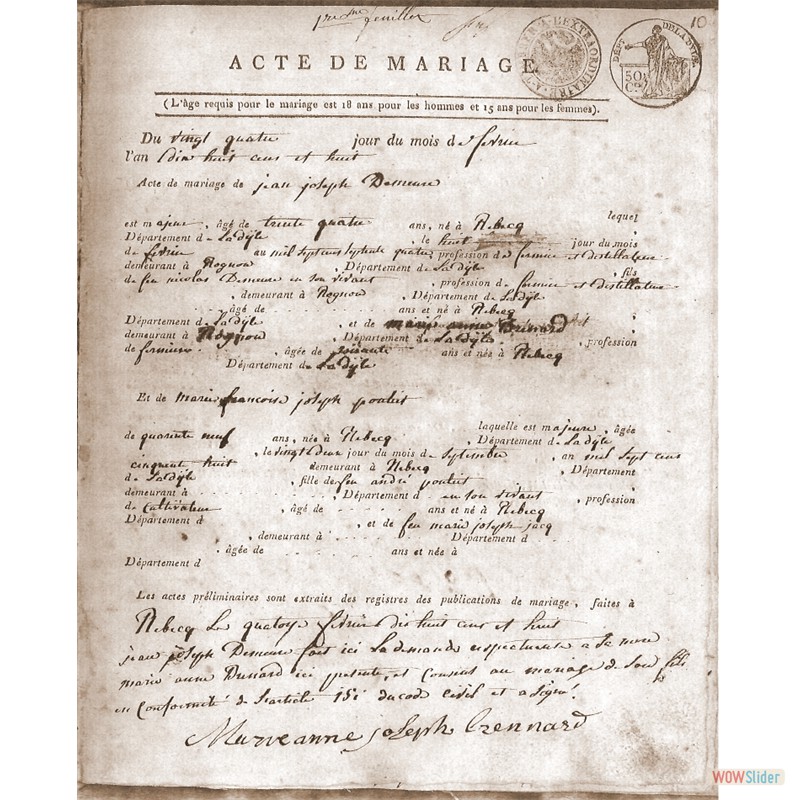 10
ACTE DE MARIAGE
DEPT DE LA DYLE
50 Cs
(L'âge requis pour le mariage est 18 ans pour les hommes et 15 ans pour les femmes).
Du vingt quatre jour du mois de fevrier
l'an dix huit cens et huit
Acte de mariage de jean joseph Demeure
lequel
est majeur, âgé de trente quatre ans, né à Rebecq
Département de La dÿle, le huit jour du mois
de fevrier au mil sept cens septente quatre profession de fermier et distillateur
demeurant à Rognon, Département de La dÿle fils
de feu nicolas Demeure en son vivant, profession de fermier et distillateur
, demeurant à Rognon, Département de La dÿle
, âgé de ans et né à Rebecq
Département de La dÿle, et de marie anne ;
demeurant à Rognon, Département de La dÿle, profession
de fermiere, âgée de soixante ans et née à Rebecq
Département de La dÿle
Et de marie francoise joseph
laquelle est majeure, âgée
de quarente neuf ans, née à Rebecq, Département de La dÿle
, le vingt deux jour du mois de septembre an mil sept cens
cinquent huit demeurant à Rebecq, Département
de La dÿle, fille de feu andré
demeurant à, Département d en son vivant, profession
de cultivateur âgé de ans et né à Rebecq
Département d, et de feu marie joseph jacq
, demeurant à Département d
, âgée de ans et née à
Département d
Les actes préliminaires sont extraits des registres des publications de mariage, faites à
Rebecq Le quatorze fevrier dix huit cens et huit
jean joseph Demeure fait ici La demande respectueuse a sa mere
marie anne ici presente, et consent au mariage de son fils
en conformité de L'article 151 du code civil et a signé
Marie anne joseph Crennard
WOWSlider